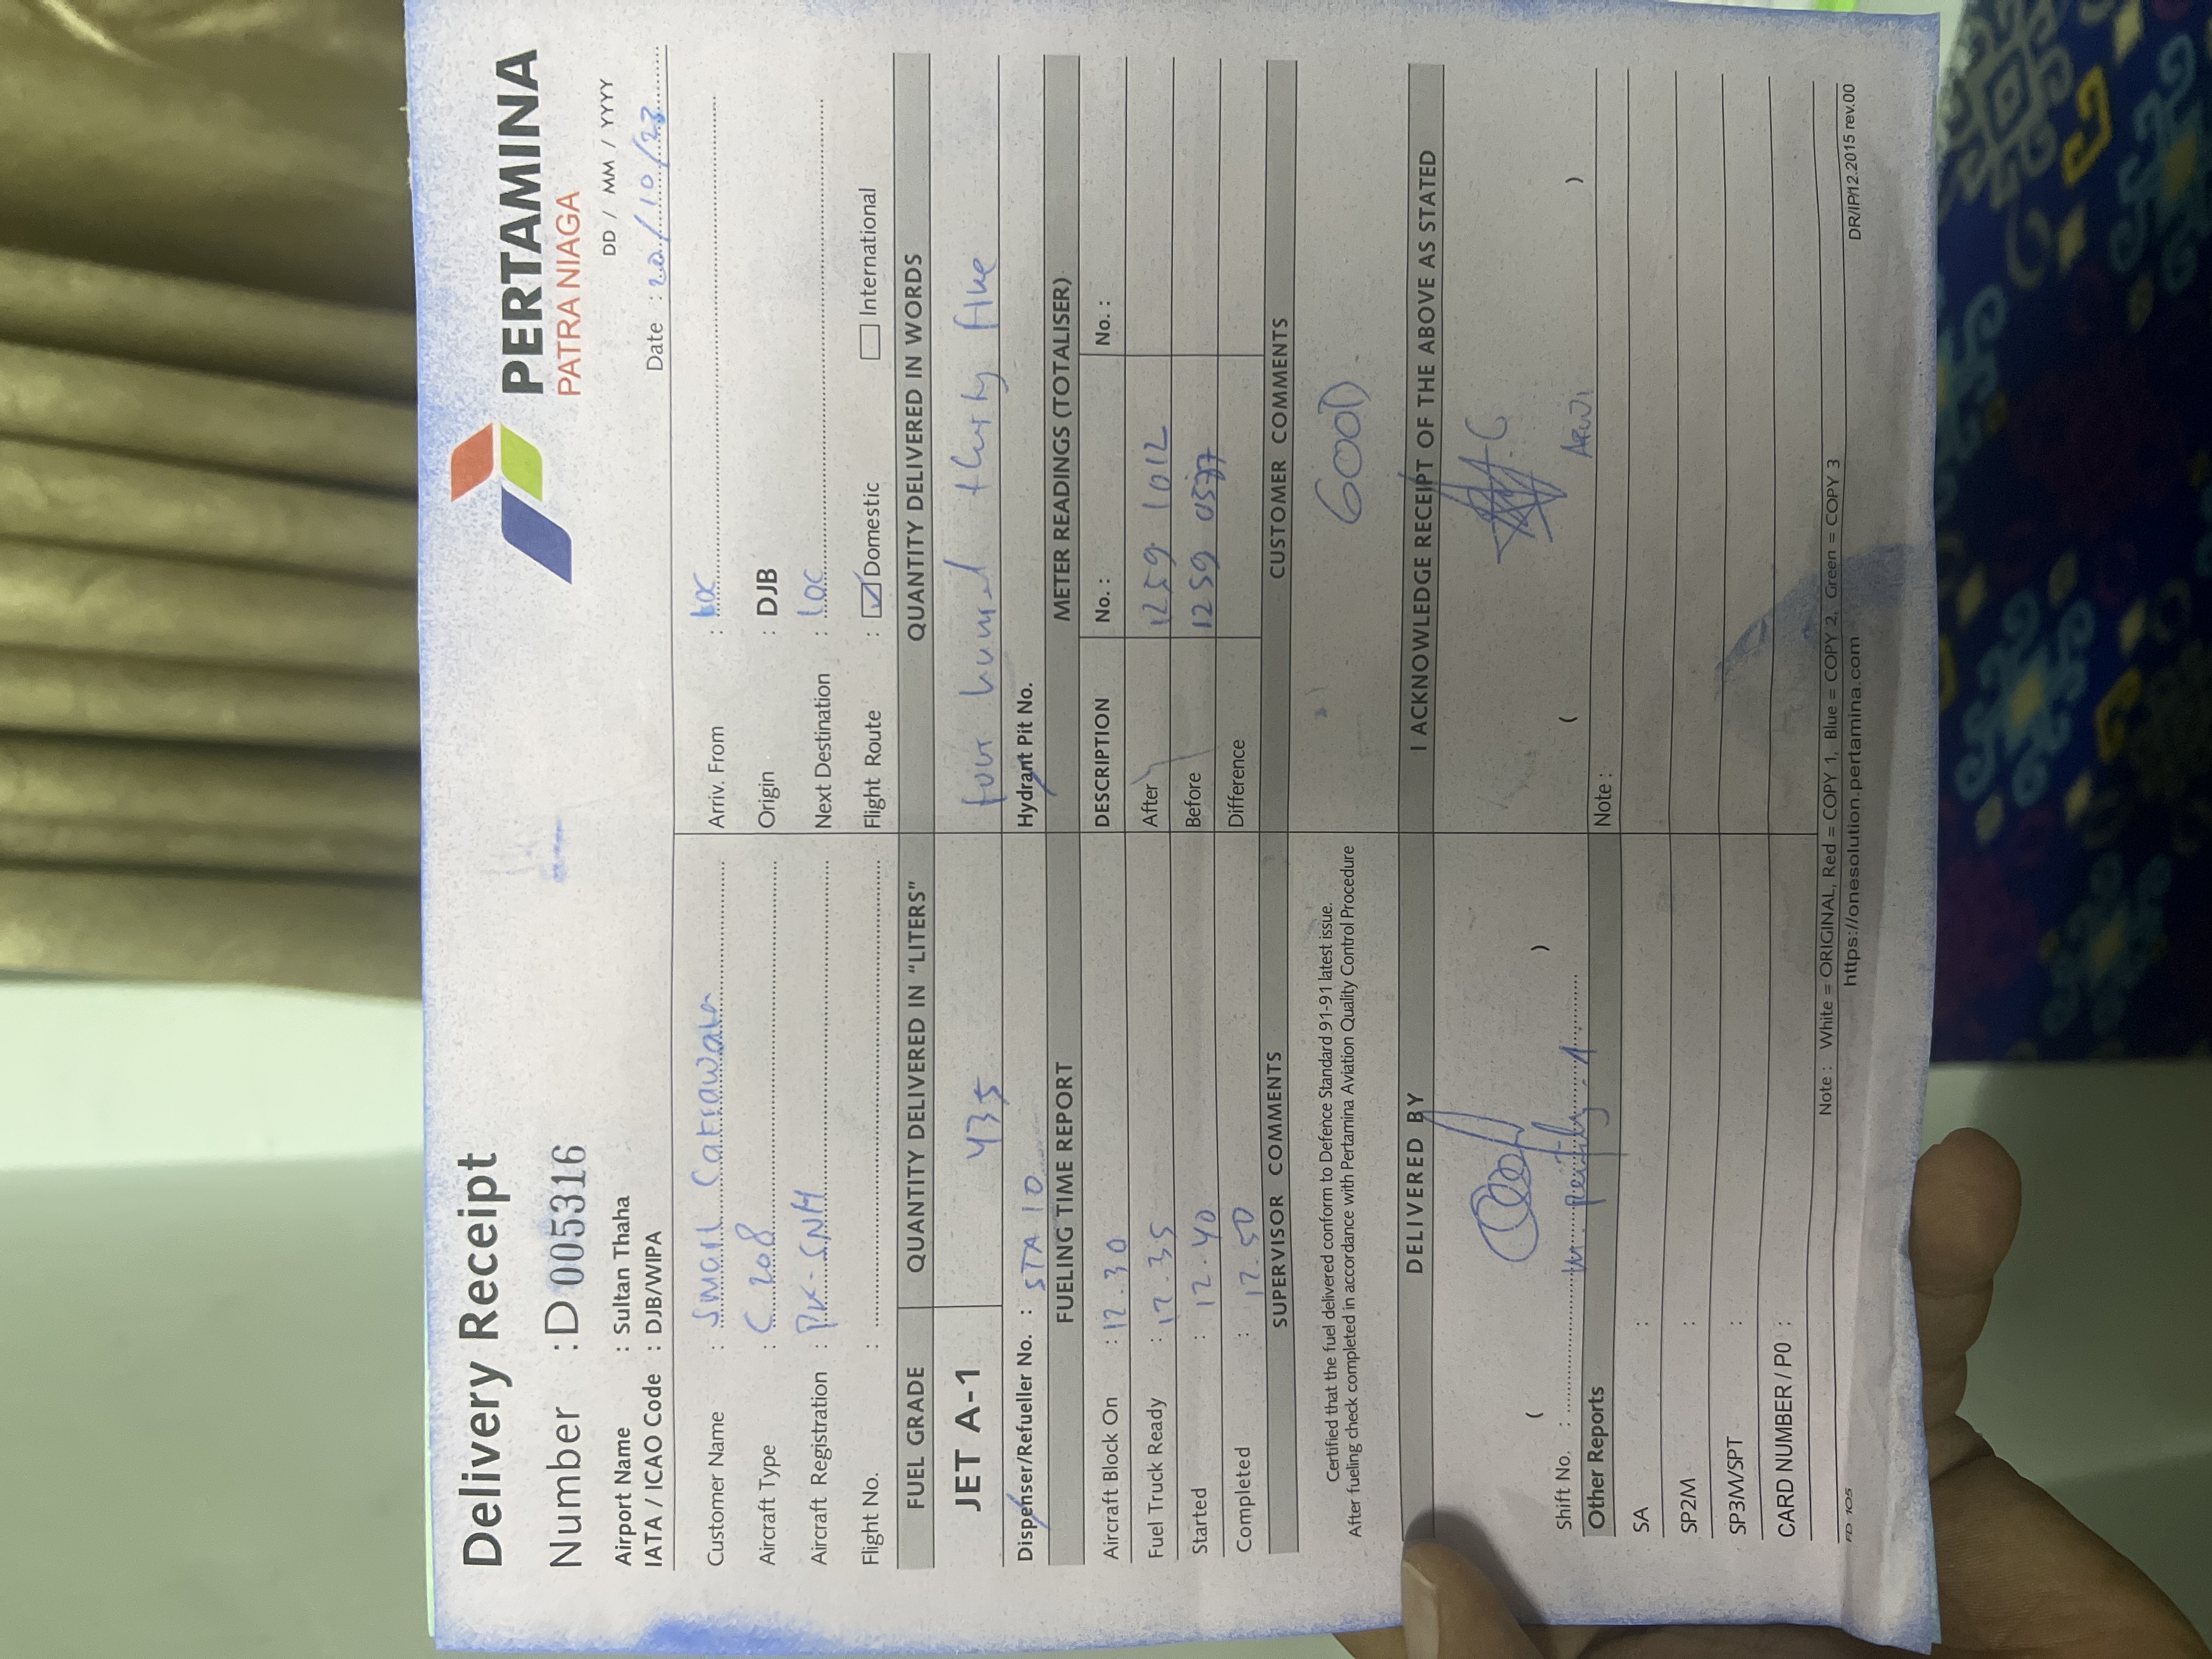 Delivery Receipt
PERTAMINA
PATRA NIAGA
Number : D 005316
Airport Name : Sultan Thaha
DD / MM / YYYY
IATA / ICAO Code : DJB/WIPA
Date : 20/10/23
Customer Name : Smart Cakrawala
Arriv. From : Loc
Aircraft Type : C 208
Origin : DJB
Aircraft Registration : PK-SNH
Next Destination : Loc
Flight No. :
Flight Route : Domestic International
FUEL GRADE QUANTITY DELIVERED IN "LITERS" QUANTITY DELIVERED IN WORDS
JET A-1 435 four hundred thirty five
Dispenser/Refueller No. : STA 10 Hydrant Pit No.
FUELING TIME REPORT METER READINGS (TOTALISER)
Aircraft Block On : 12.30 DESCRIPTION No. : No. :
Fuel Truck Ready : 12.35 After 1259 1012
Started : 12.40 Before 1259 0577
Completed : 12.50 Difference
SUPERVISOR COMMENTS CUSTOMER COMMENTS
Certified that the fuel delivered conform to Defence Standard 91-91 latest issue.
After fueling check completed in accordance with Pertamina Aviation Quality Control Procedure
GOOD
DELIVERED BY I ACKNOWLEDGE RECEIPT OF THE ABOVE AS STATED
( ) ( )
Shift No. :
Other Reports Note :
SA :
SP2M :
SP3M/SPT :
CARD NUMBER / PO :
Note : White = ORIGINAL, Red = COPY 1, Blue = COPY 2, Green = COPY 3
FD 105 https://onesolution.pertamina.com DR/IP/12.2015 rev.00